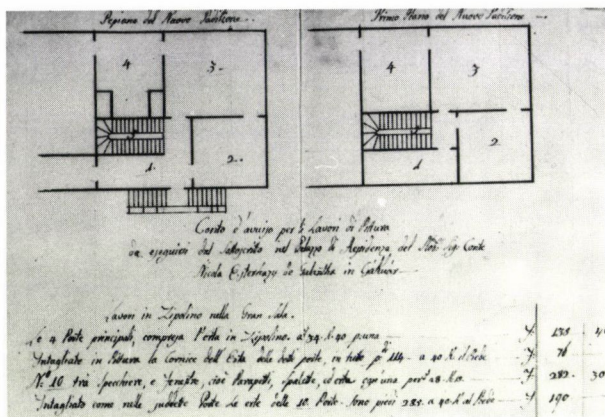 Pepiano del Nuovo Padiglione
Primo Piano del Nuovo Padiglione
4
3
1
2
4
3
1
2
Conto d'avviso per li Lavori di Pittura
da eseguirsi dal Sottoscritto nel Palazzo di Residenza del Sig. Conte
Nicola Esterhazy de Galantha in
Lavori in Zipolino nella Gran Sala.
Le 4 Porte principali, compresa l'erta in Zipolino a 34 k 40 l'una
Intagliate in Pittura la Cornice dell'Erta delle porte, in tutto 114 a 40 k
No. 10 tra Specchiere, e Fenestre, cioè Parapetti, Spalette, ed erta
Intagliato come nelle Porte Le erte delle 10 Porte sono piedi 285 a 40 k
76
282 30
190